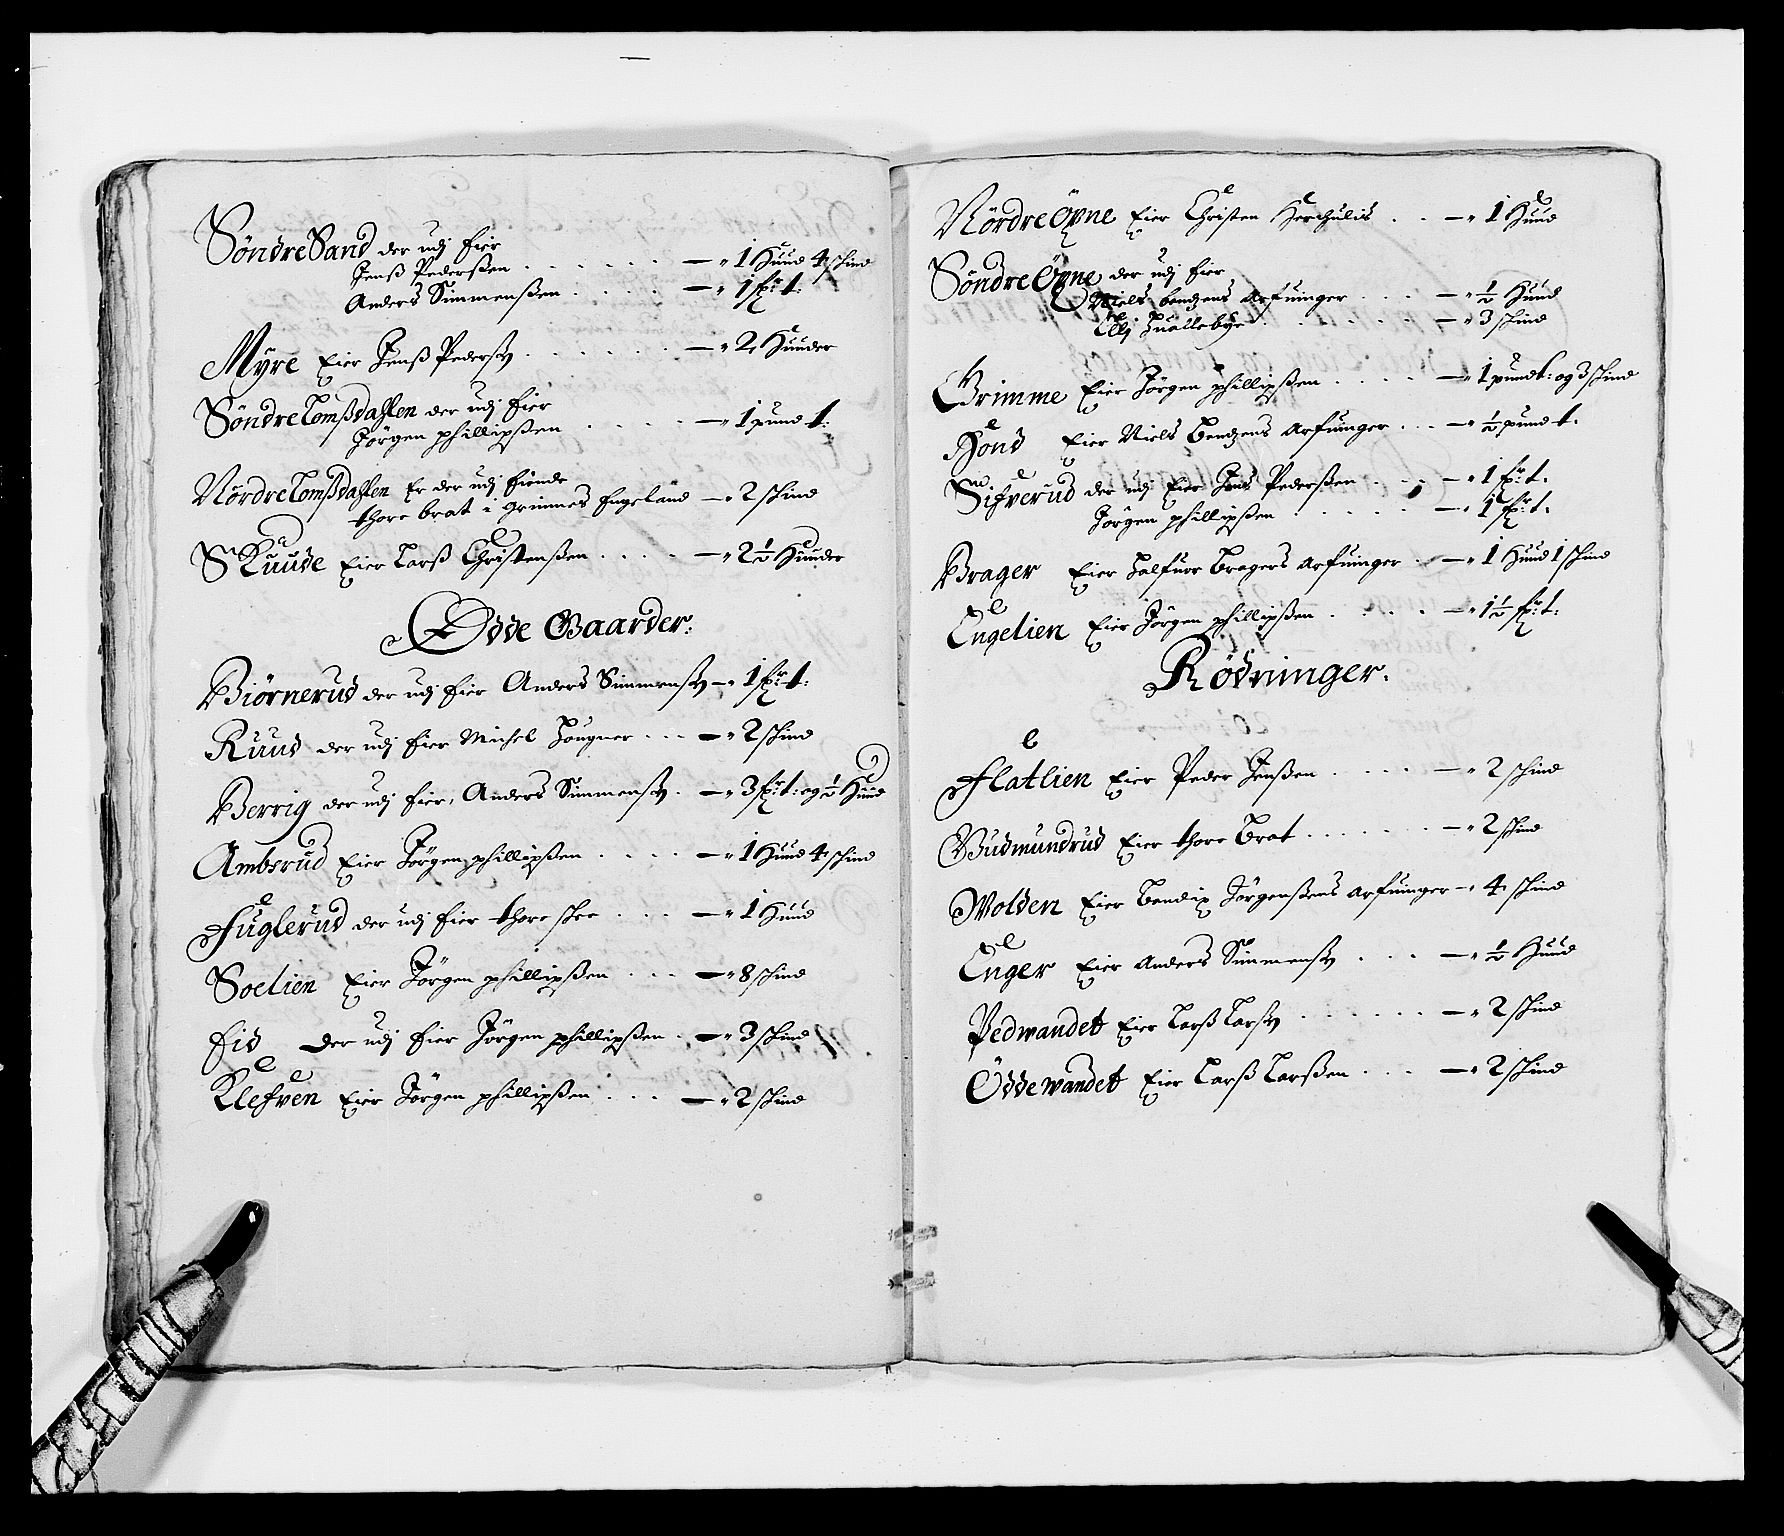 Söndre Sand der udj Eier
Jenß Pederßen . . . . . . — " 1 Huud 4 schind
Anders Simmenßen . . . . — " 1 fr: t:
Myre Eier Jenß Peders . . . . . — " 2 Huuder
Söndre Lomßdahlen der udj Eier
Jörgen phillipßen . . . . — " 1 pund t:
Nördre Lomßdahlen Er der udj Eiende
thore brat i grimmes Engeland — " 2 schind
Skuude Eier Larß Christenßen . . . . — " 2½ Huuder
Ödde Gaarder:
Biörnerud der udj Eier Anders Simmens — " 1 fr: t:
Ruud der udj Eier Michel Hougner . . . — " 2 schind
Berrig der udj Eier, Anders Simmens . — " 3 fr: t: og ½ Huud
Ambsrud Eier Jörgen phillipßen . . . . — " 1 Huud 4 schind
Fuglerud der udj Eier thore skee . . . — " 1 Huud
Soelien Eier Jörgen phillipßen . . . — " 8 schind
Eid der udj Eier Jörgen phillipßen . — " 3 schind
Klefven Eier Jörgen phillipßen . . . — " 2 schind
Nördre Öyne Eier Christen Herchulis . . — " 1 Huud
Söndre Öyne der udj Eier
Niels bendzens Arfuinger . . . — " ½ Huud
Ellj Huallebye . . . . . . — " 3 schind
Grimme Eier Jörgen phillipßen . . . . — " 1 pund t: og 3 schind
Hönd Eier Niels Bendzens Arfuinger . . . — " ½ pund t.
Sifverud der udj Eier Jens Pederßen . . . — " 1 fr: t.
Jörgen phillipßen . . . . . — " 1 fr: t.
Brager Eier Halfuor Bragers Arfuinger . — " 1 Huud 1 schind
Engelien Eier Jörgen phillipßen . . . . — " 1½ fr: t:
Rödninger.
Flatlien Eier Peder Jenßen . . . . — " 2 schind
Gudmundrud Eier thore Brat . . . . . . — " 2 schind
Wolden Eier Bendix Jörgenßens Arfuinger — " 4 schind
Enger Eier Anders Simmens . . . — " ½ Huud
Vedwandet Eier Larß Lars . . . . . . — " 2 schind
Öddewandet Eier Larß Larßen . . . — " 2 schind